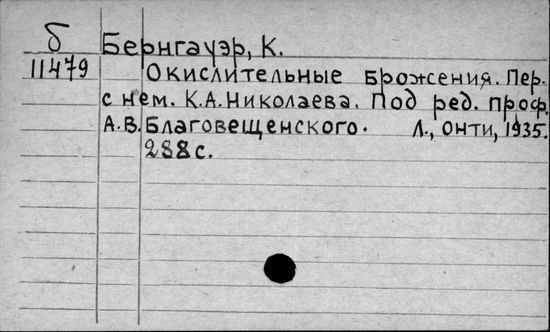 б Бернгауэр, К.
11479 Окислительные Брожения. Пер.
с нем. К.А. Николаева. Под ред. проф.
А.В. Благовещенского. Л., ОНТИ, 1935.
288 с.